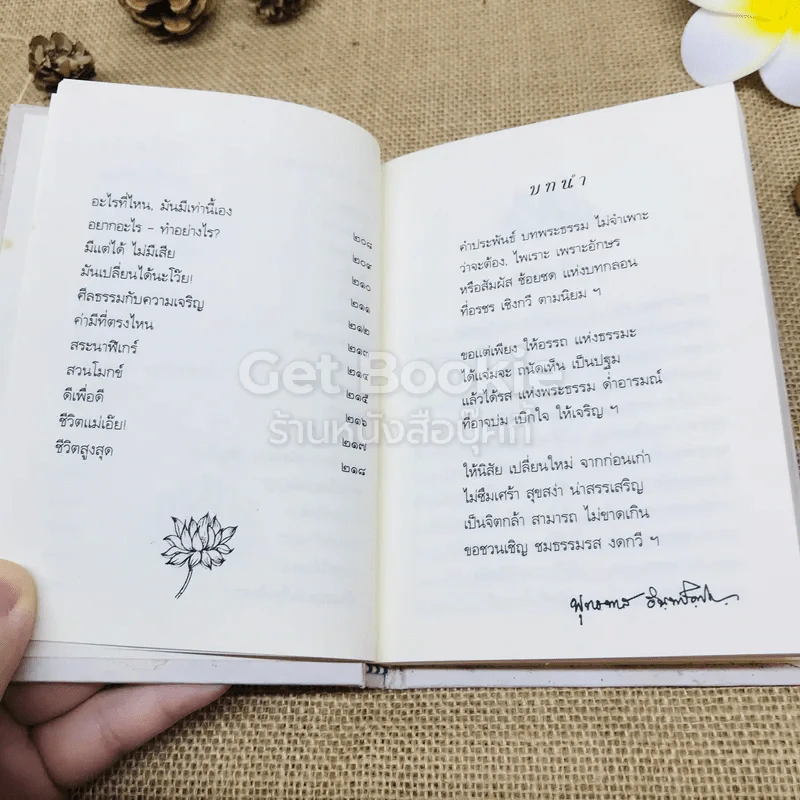 อะไรที่ไหน, มันมีเท่านี้เอง ๒๐๘
อยากอะไร - ทำอย่างไร? ๒๐๙
มีแต่ได้ ไม่มีเสีย ๒๑๐
มันเปลี่ยนได้นะโว๊ย! ๒๑๑
ศีลธรรมกับความเจริญ ๒๑๒
ค่ามีที่ตรงไหน ๒๑๓
สระนาฬิเกร์ ๒๑๔
สวนโมกข์ ๒๑๕
ดีเพื่อดี ๒๑๖
ชีวิตแม่เอ๊ย! ๒๑๗
ชีวิตสูงสุด ๒๑๘
บทนำ
คำประพันธ์ บทพระธรรม ไม่จำเพาะ
ว่าจะต้อง, ไพเราะ เพราะอักษร
หรือสัมผัส ช้อยชด แห่งบทกลอน
ที่อรชร เชิงกวี ตามนิยม ฯ
ขอแต่เพียง ให้อรรถ แห่งธรรมะ
ได้แจ่มจะ ถนัดเห็น เป็นปฐม
แล้วได้รส แห่งพระธรรม ด่ำอารมณ์
ที่อาจบ่ม เบิกใจ ให้เจริญ ฯ
ให้นิสัย เปลี่ยนใหม่ จากก่อนเก่า
ไม่ซึมเศร้า สุขสง่า น่าสรรเสริญ
เป็นจิตกล้า สามารถ ไม่ขาดเกิน
ขอชวนเชิญ ชมธรรมรส งดกวี ฯ
พุทธทาส อินทปัญโญ
Get Bookie
ร้านหนังสือบุ๊คกี้